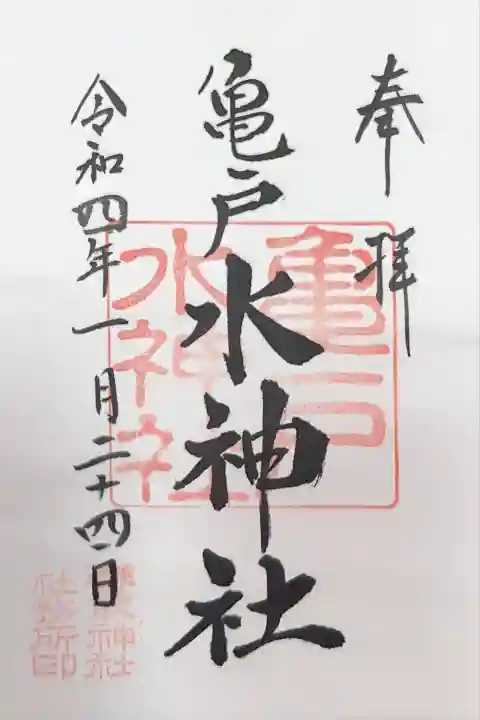 奉拝
亀戸水神社
令和四年一月二十四日
亀戸
水神社
神社
社務所印